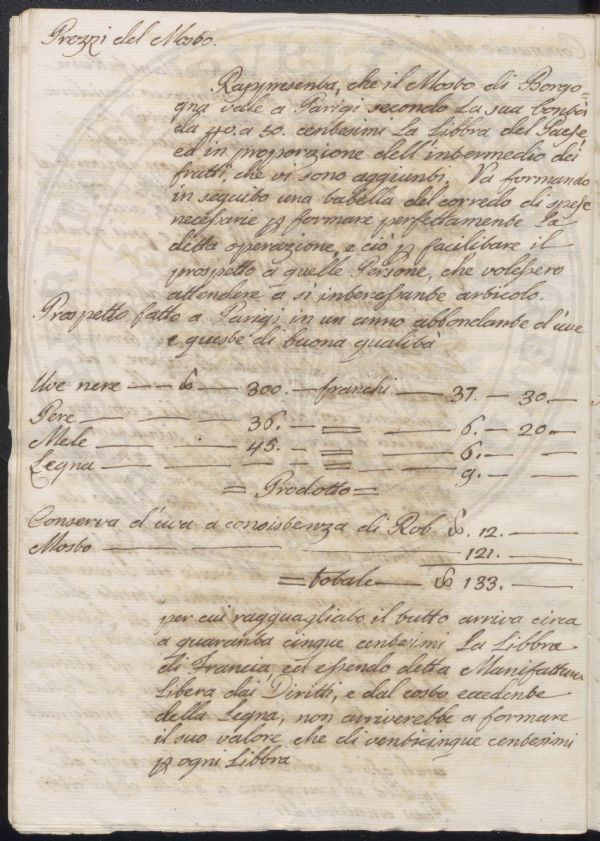 Prezzi del Mosto.
Rappresenta, che il Mosto di Borgo=
gna vale a Parigi secondo La sua bontà
da 40. a 50. centesimi La Libbra del Paese
ed in proporzione dell'intermedio dei
frutti, che vi sono aggiunti. Va formando
in seguito una tabella del corredo di spese
necessarie p formare perfettamente La
detta operazione, e ciò p facilitare il
prospetto a quelle Persone, che volessero
attendere a sì interessante articolo.
Prospetto fatto a Parigi in un anno abbondante d'uve
e queste di buona qualità
Uve nere — — ℔ — 300. — franchi — 37. — 30. —
Pere — — — 36. — = — 6. — 20. —
Mele — — — 45. — = — 6. — —
Legna — — — — = — 9. — —
= Prodotto =
Conserva d'uva a consistenza di Rob ℔. 12. —
Mosto — — — — 121. —
= totale — ℔ 133. —
per cui ragguagliato il tutto arriva circa
a quaranta cinque centesimi La Libbra
di Francia, ed essendo detta Manifattura
Libera dai Diritti, e dal costo eccedente
della Legna, non arriverebbe a formare
il suo valore che di venticinque centesimi
p ogni Libbra